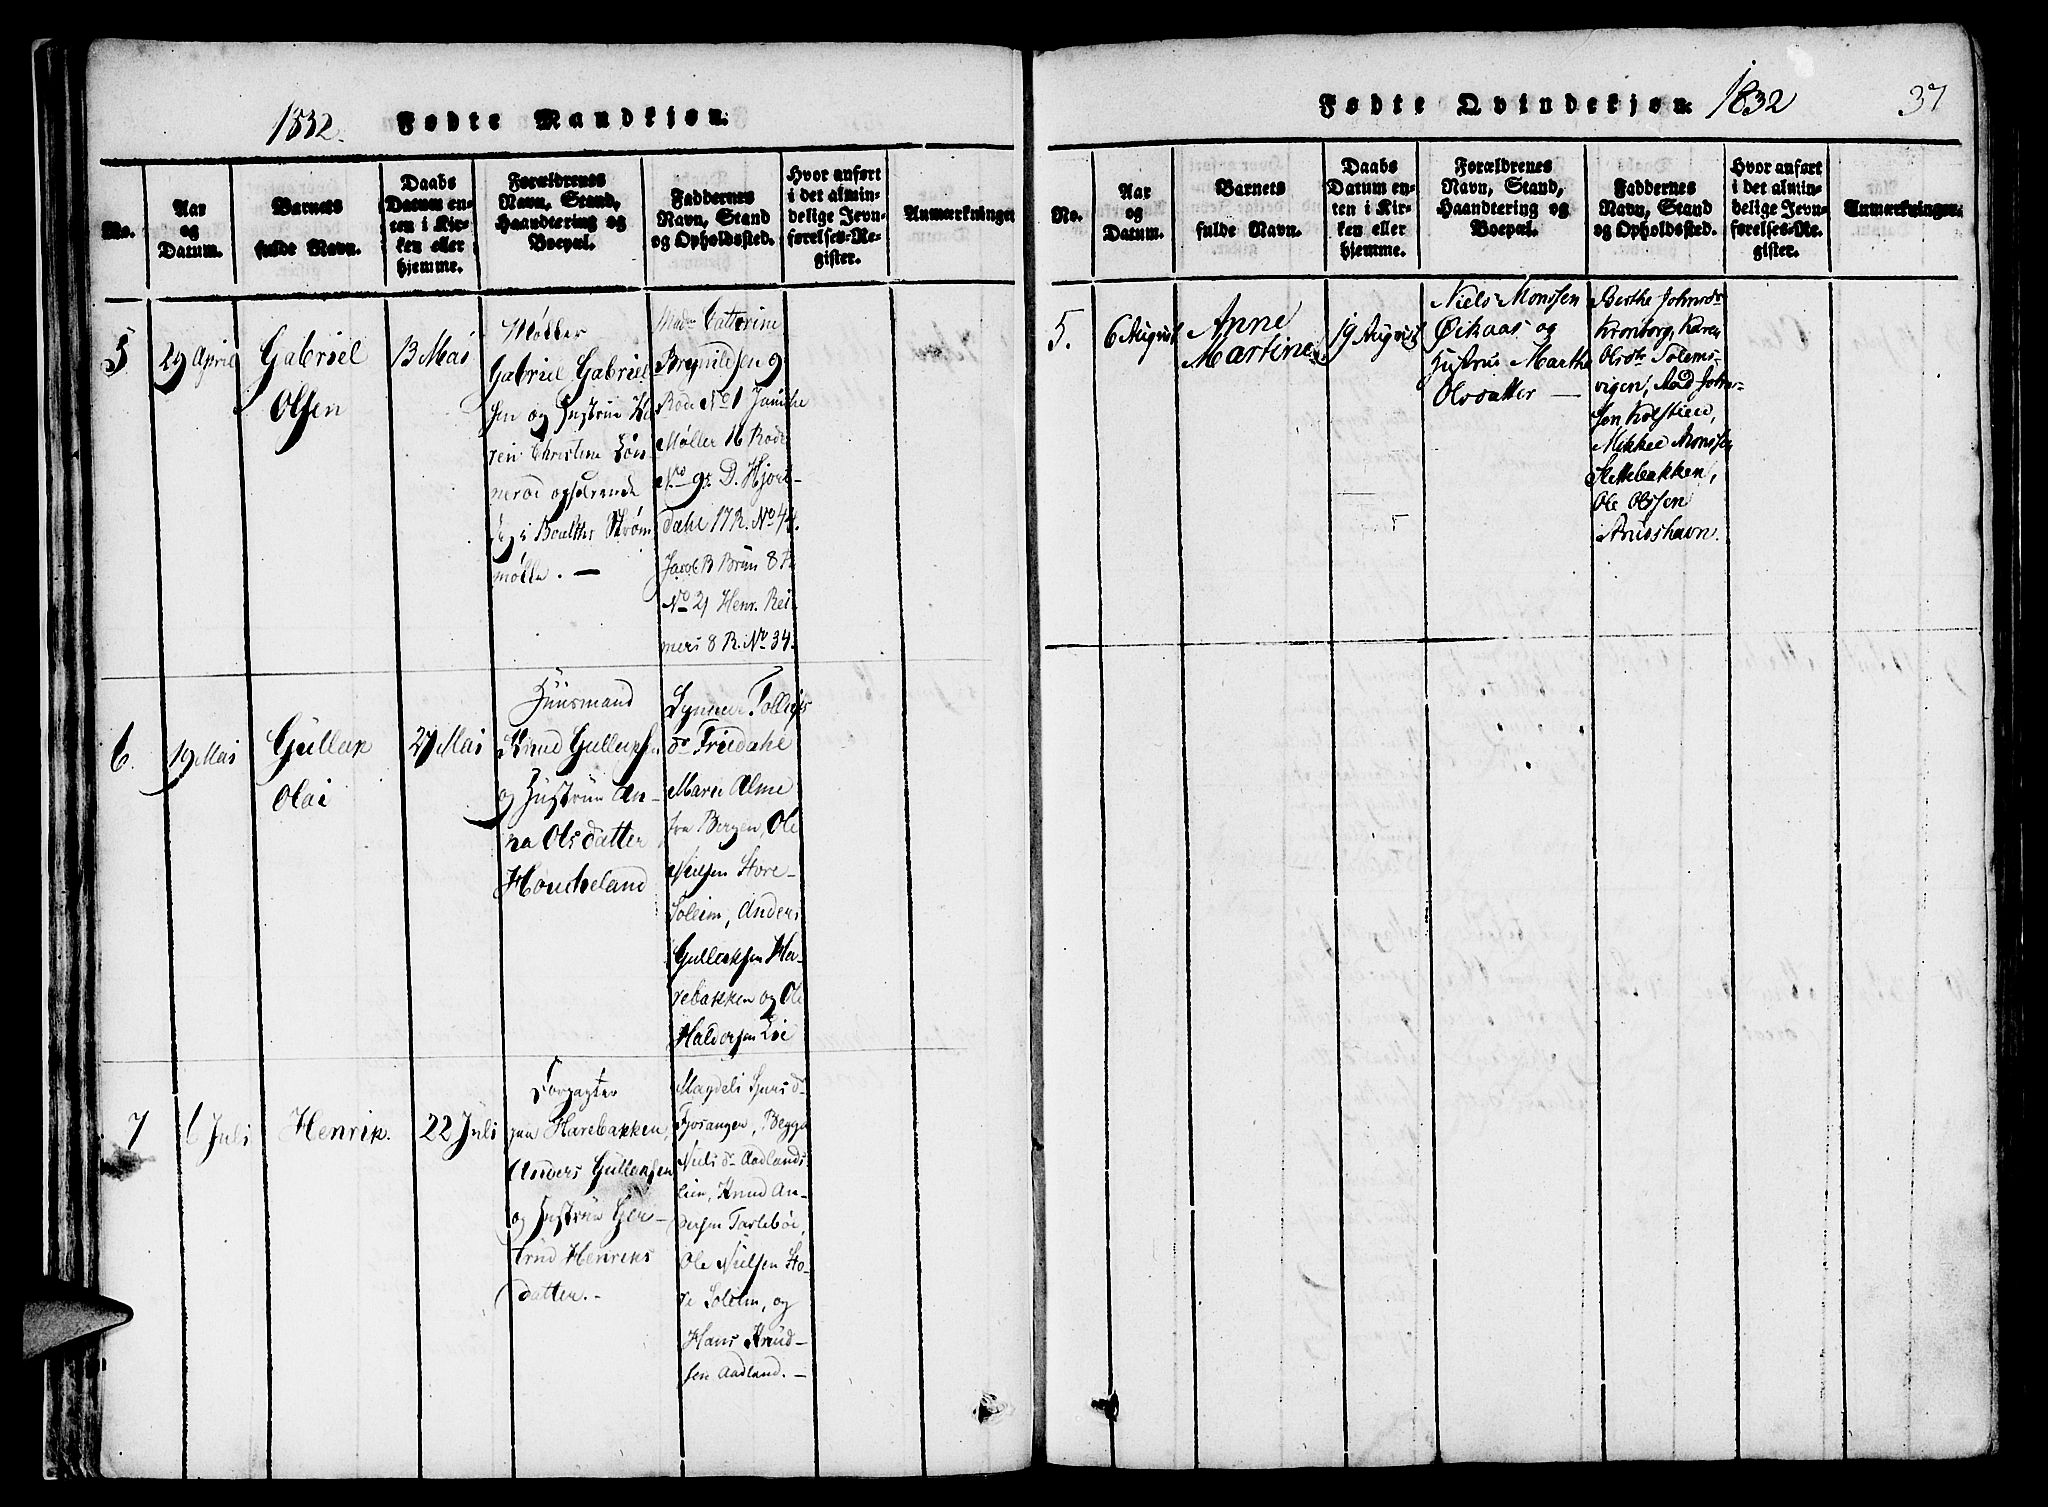 1832.
Fødte Mandkjøn.
No.
Aar
og
Datum.
Barnets
fulde Navn.
Daabs
Datum en-
ten i Kir-
ken eller
hjemme.
Forældrenes
Navn, Stand,
Haandtering og
Boepæl.
Faddernes
Navn, Stand
og Opholdssted.
Hvor anført
i det almin-
delige Jevn-
førelses-Re-
gister.
Anmærkninger
5
29 April
Gabriel
Olsen
13 Mai
Møller
Gabriel Gabriel
sen og Hustrue
Christine
og
i
mølle. —
Mad. Cattorine
Brynildsen 9
Rode No 1
Møller 16 Rode
No 95. D. Hjort-
dahl 17 R. No 44.
Jacob B Brun 8 R
No 21 Henr. Rei-
mers 8 R. No 34.
6.
19 Mai
Gullak
Olai
27 Mai
Huusmand
Knud Gullaksen
og Hustrue An-
na Olsdatter
Houkeland
Synneve
dr Friedahl
Marie Alme
fra Bergen, Ole
Nielsen Store-
Soleim, Anders
Gullaksen Ha-
rebakken og Ole
Haldorsen Lie
7
6 Juli
Henrik.
22 Juli
Forpagter
paa Harebakken,
Anders Gullaksen
og Hustrue Ger-
trud Henriks
datter.-
Magdeli dr
Fjøsangen,
Niels dr Aadlands
lien, Knud An-
dersen
Ole Nielsen Sto-
re Soleim, og
Hans Knud-
sen Aadland. —
Fødte Qvindekjøn.
1832
37
No.
Aar
og
Datum.
Barnets
fulde Navn.
Daabs
Datum en-
ten i Kir-
ken eller
hjemme.
Forældrenes
Navn, Stand,
Haandtering og
Boepæl.
Faddernes
Navn, Stand
og Opholdssted.
Hvor anført
i det almin-
delige Jevn-
førelses-Re-
gister.
Anmærkninger.
5.
6 August
Anne
Martine
19 August
Niels Monssen
Øikaas og
Hustrue Marthe
Olsdatter —
Berthe Johnsdr
Kronborg, Karen
Olsdr Solems-
vigen, Aad John-
sen Kolstien,
Mikkel Monssen
Slettebakken,
Ole Olssen